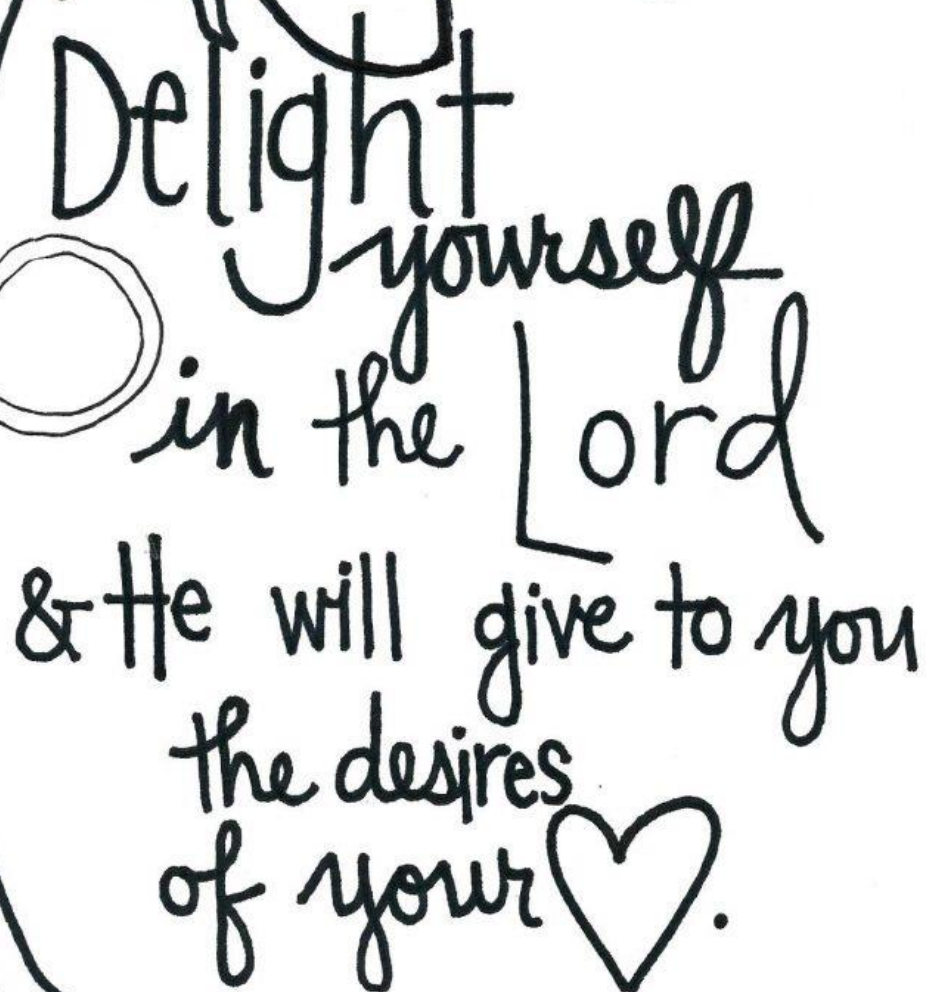 Delight
yourself
in the Lord
& He will give to you
the desires
of your ♡.